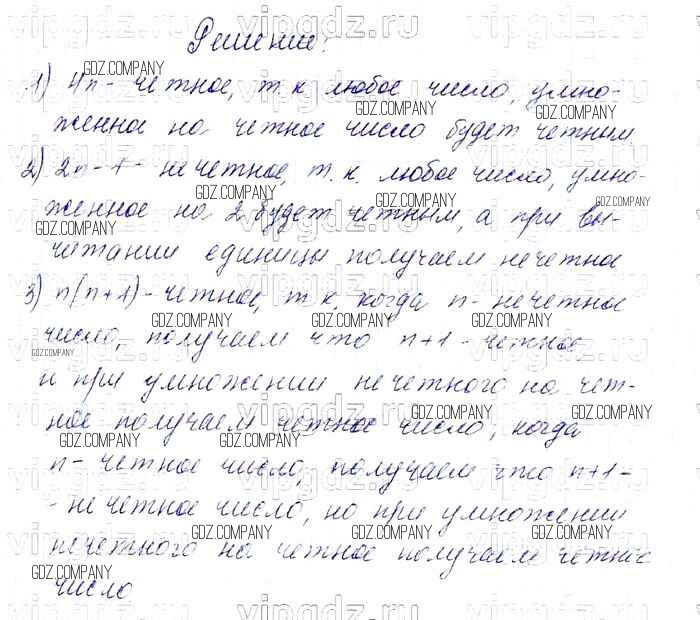 Решение:
1) 4n - четное, т.к. любое число, умно-
женное на четное число будет четным
2) 2n - 1 - нечетное, т.к. любое число, умно-
женное на 2 будет четным, а при вы-
читании единицы получаем нечетное
3) n(n+1) - четное, т.к. когда n - нечетное
число, получаем что n+1 - четное,
и при умножении нечетного на чет-
ное получаем четное число, когда
n - четное число, получаем что n+1 -
- нечетное число, но при умножении
нечетного на четное получаем четное
число